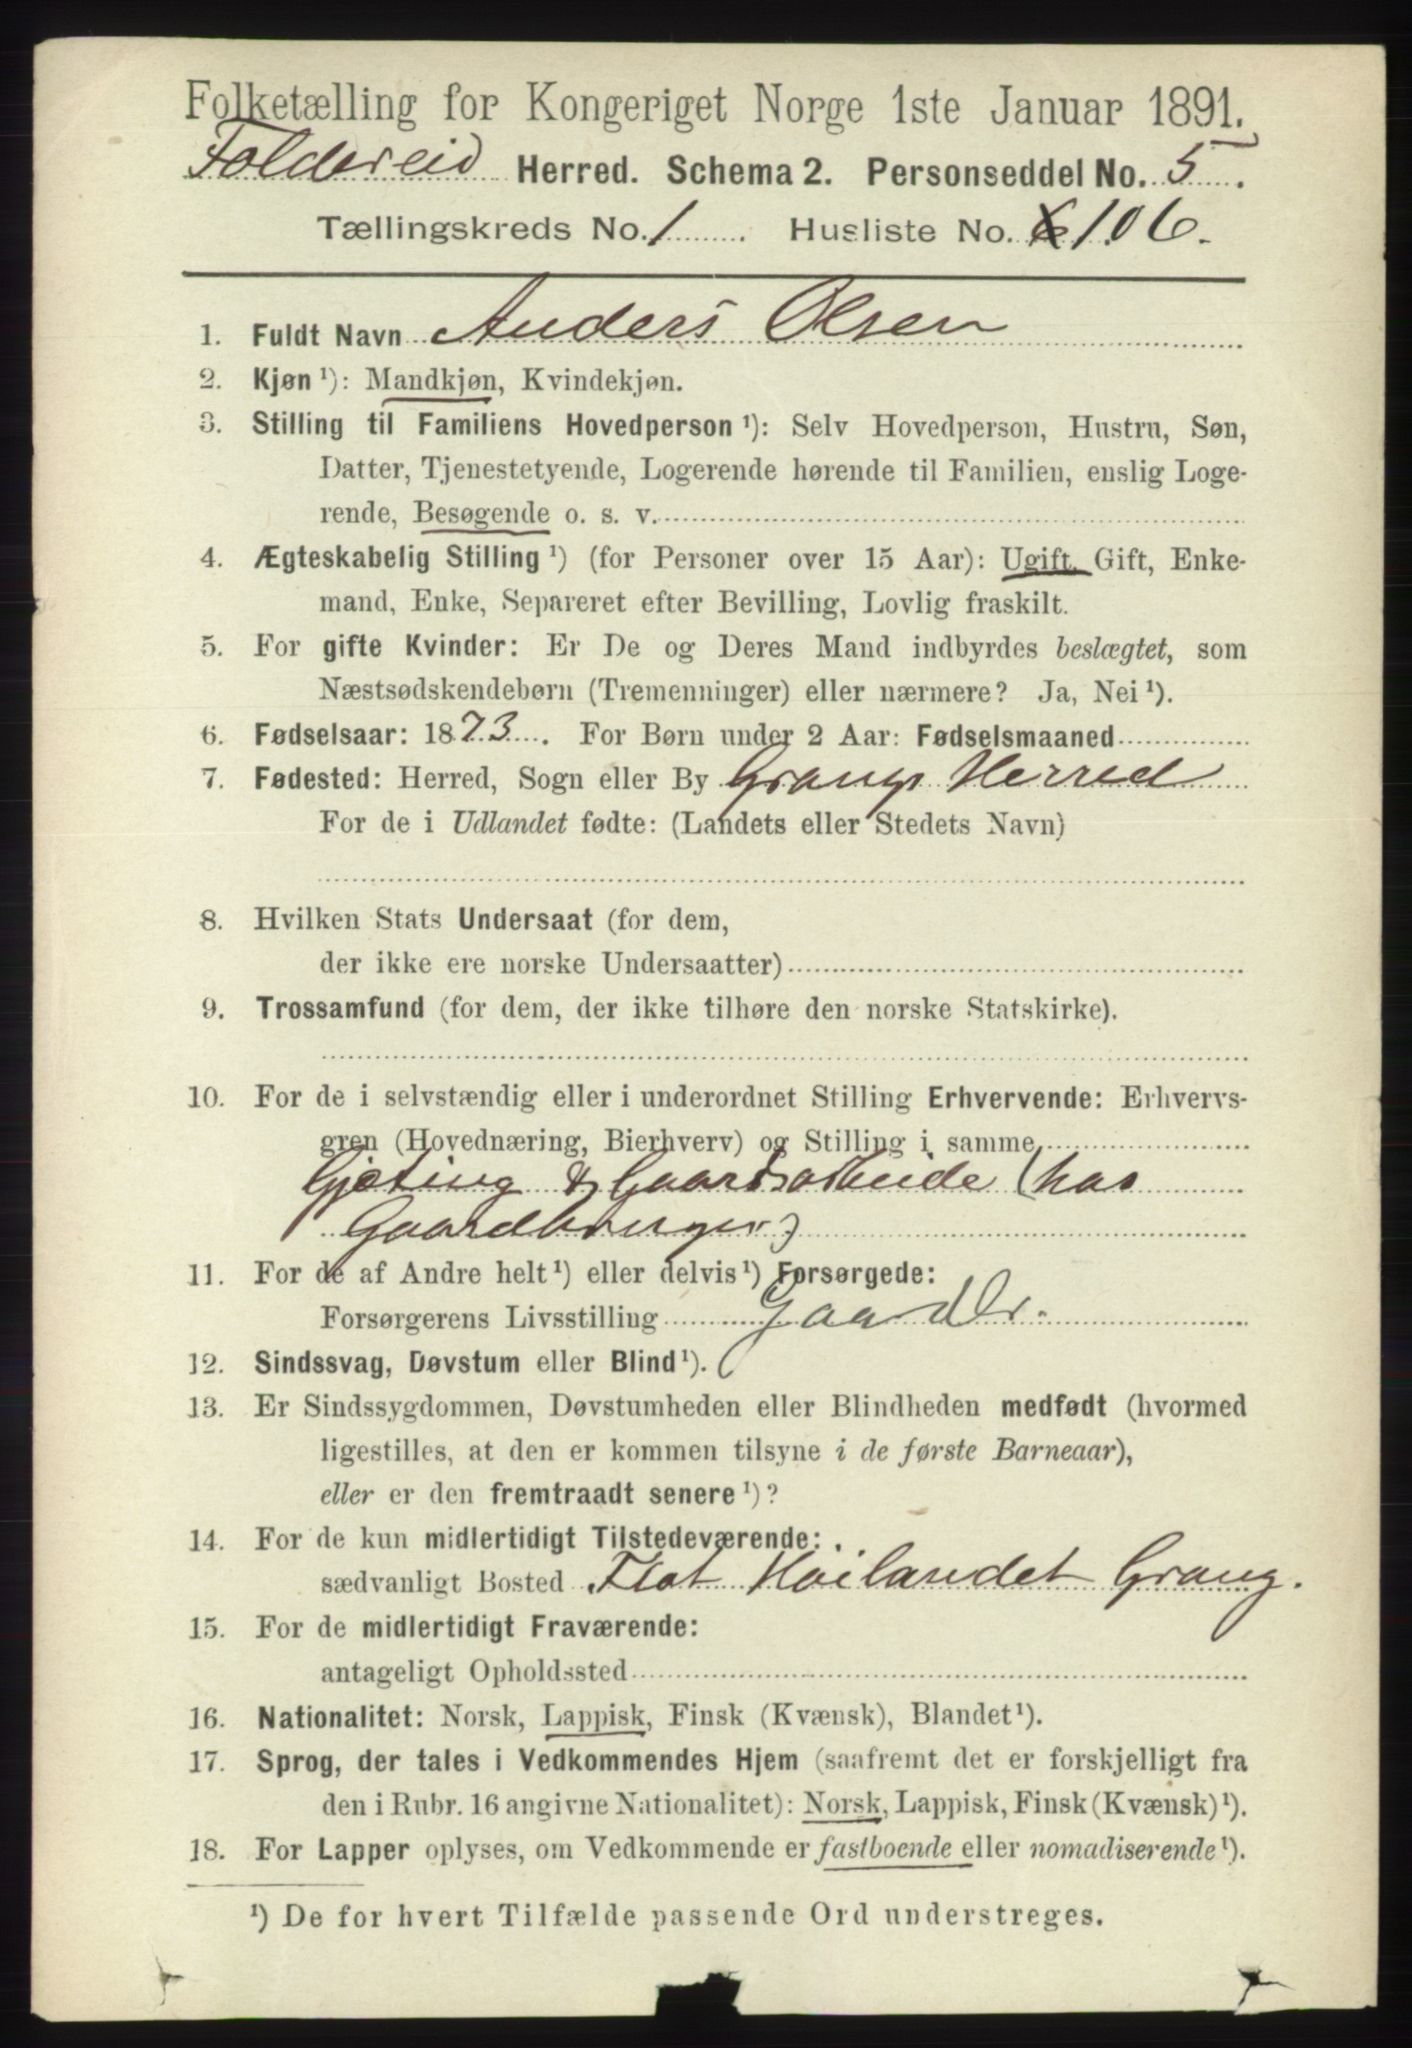 Folketælling for Kongeriget Norge 1ste Januar 1891.
Foldereid Herred. Schema 2. Personseddel No. 5.
Tællingskreds No. 1. Husliste No. 6 106.
1. Fuldt Navn Anders Olsen
2. Kjøn ¹): Mandkjøn, Kvindekjøn.
3. Stilling til Familiens Hovedperson ¹): Selv Hovedperson, Hustru, Søn,
Datter, Tjenestetyende, Logerende hørende til Familien, enslig Loge-
rende, Besøgende o. s. v.
4. Ægteskabelig Stilling ¹) (for Personer over 15 Aar): Ugift, Gift, Enke-
mand, Enke, Separeret efter Bevilling, Lovlig fraskilt.
5. For gifte Kvinder: Er De og Deres Mand indbyrdes beslægtet, som
Næstsødskendebørn (Tremenninger) eller nærmere? Ja, Nei ¹).
6. Fødselsaar: 1873. For Børn under 2 Aar: Fødselsmaaned
7. Fødested: Herred, Sogn eller By Grongs Herred
For de i Udlandet fødte: (Landets eller Stedets Navn)
8. Hvilken Stats Undersaat (for dem,
der ikke ere norske Undersaatter)
9. Trossamfund (for dem, der ikke tilhøre den norske Statskirke).
10. For de i selvstændig eller i underordnet Stilling Erhvervende: Erhvervs-
gren (Hovednæring, Bierhverv) og Stilling i samme
Gjeting & Gaardsarbeide (hos
Gaardbruger)
11. For de af Andre helt ¹) eller delvis ¹) Forsørgede:
Forsørgerens Livsstilling Gaardbr.
12. Sindssvag, Døvstum eller Blind ¹).
13. Er Sindssygdommen, Døvstumheden eller Blindheden medfødt (hvormed
ligestilles, at den er kommen tilsyne i de første Barneaar),
eller er den fremtraadt senere ¹)?
14. For de kun midlertidigt Tilstedeværende:
sædvanligt Bosted Flot Høilandet Grong.
15. For de midlertidigt Fraværende:
antageligt Opholdssted
16. Nationalitet: Norsk, Lappisk, Finsk (Kvænsk), Blandet ¹).
17. Sprog, der tales i Vedkommendes Hjem (saafremt det er forskjelligt fra
den i Rubr. 16 angivne Nationalitet): Norsk, Lappisk, Finsk (Kvænsk) ¹).
18. For Lapper oplyses, om Vedkommende er fastboende eller nomadiserende ¹).
¹) De for hvert Tilfælde passende Ord understreges.